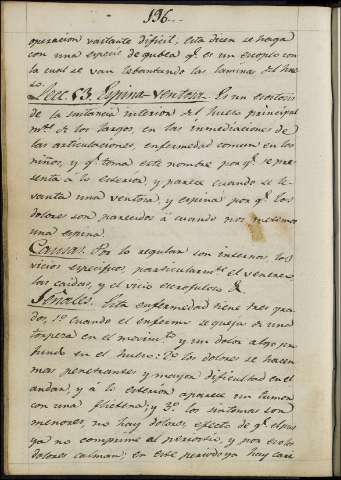 196.
operacion bastante dificil, esta dicen se haga
con una especie de gubea q.e es un escoplo con
la cual se van lebantando las laminas del hue
so.
Lecc. 53. Espina ventosa. Es un exostosis
de la sustancia interior del hueso principal
m.te de los largos, en las inmediaciones de
las articulaciones, enfermedad comun en los
niños, y q.e toma este nombre por q.e se pre
senta á lo esterior, y parece cuando se le-
vanta una ventosa, y espina por q.e los
dolores son parecidos á cuando nos metemos
una espina.
Causas. Por lo regular son internas, los
vicios especificos, particularm.te el venereo,
las caidas, y el vicio escrofuloso &.
Señales. Esta enfermedad tiene tres gra
dos, 1.o cuando el enfermo se queja de una
torpeza en el movim.to y un dolor algo pro
fundo en el hueso: 2.o los dolores se hacen
mas penetrantes y mayor dificultad en el
andar, y á lo esterior aparece un tumor
con una flictena; y 3.o los sintomas son
menores, no hay dolores, efecto de q.e el pus
ya no comprime al periostio, y por eso los
dolores calman; en este periodo ya hay cari